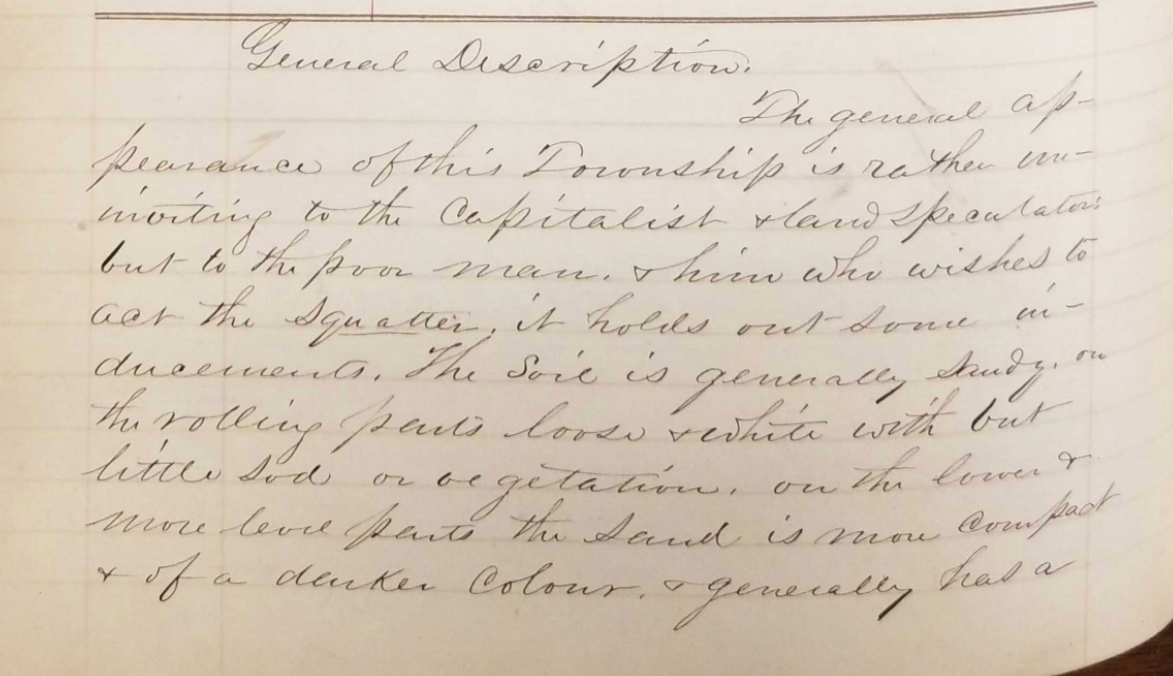 General Description.
The general ap-
pearance of this Township is rather un-
inviting to the Capitalist & land speculator:
but to the poor man. & him who wishes to
act the Squatter, it holds out some in-
ducements. The Soil is generally Sandy. on
the rolling parts loose & white with but
little sod or vegetation. on the lower &
more level parts the sand is more compact
& of a darker Colour. & generally has a